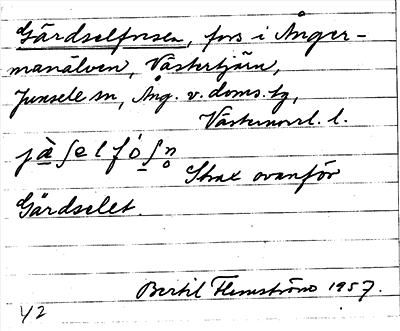 Gärdselforsen, fors i Ånger-
manälven, Västertjärn,
Junsele sn, Ång. v. doms. tg,
Västernorrl. l.
jàʃelfóʃn̥
Strax ovanför
Gärdselet.
Bertil Flemström 1957.
42